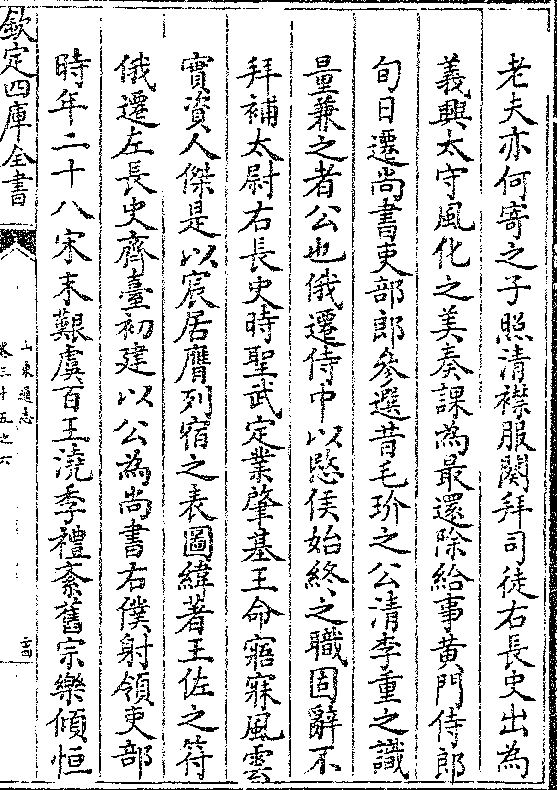 老夫亦何寄之子照清襟服闋拜司徒右長史出為
義興太守風化之美奏課為最還除給事黄門侍郎
旬日遷尚書吏部郎參選昔毛玠之公清李重之識
量兼之者公也俄遷侍中以愍侯始終之職固辭不
拜補太尉右長史時聖武定業肇基王命寤寐風雲
實資人傑是以宸居膺列宿之表圖緯著王佐之符
俄遷左長史齊臺初建以公為尚書右僕射領吏部
時年二十八宋末艱虞百王澆季禮紊舊宗樂傾恒
欽定四庫全書
山東通志
卷三十五之六